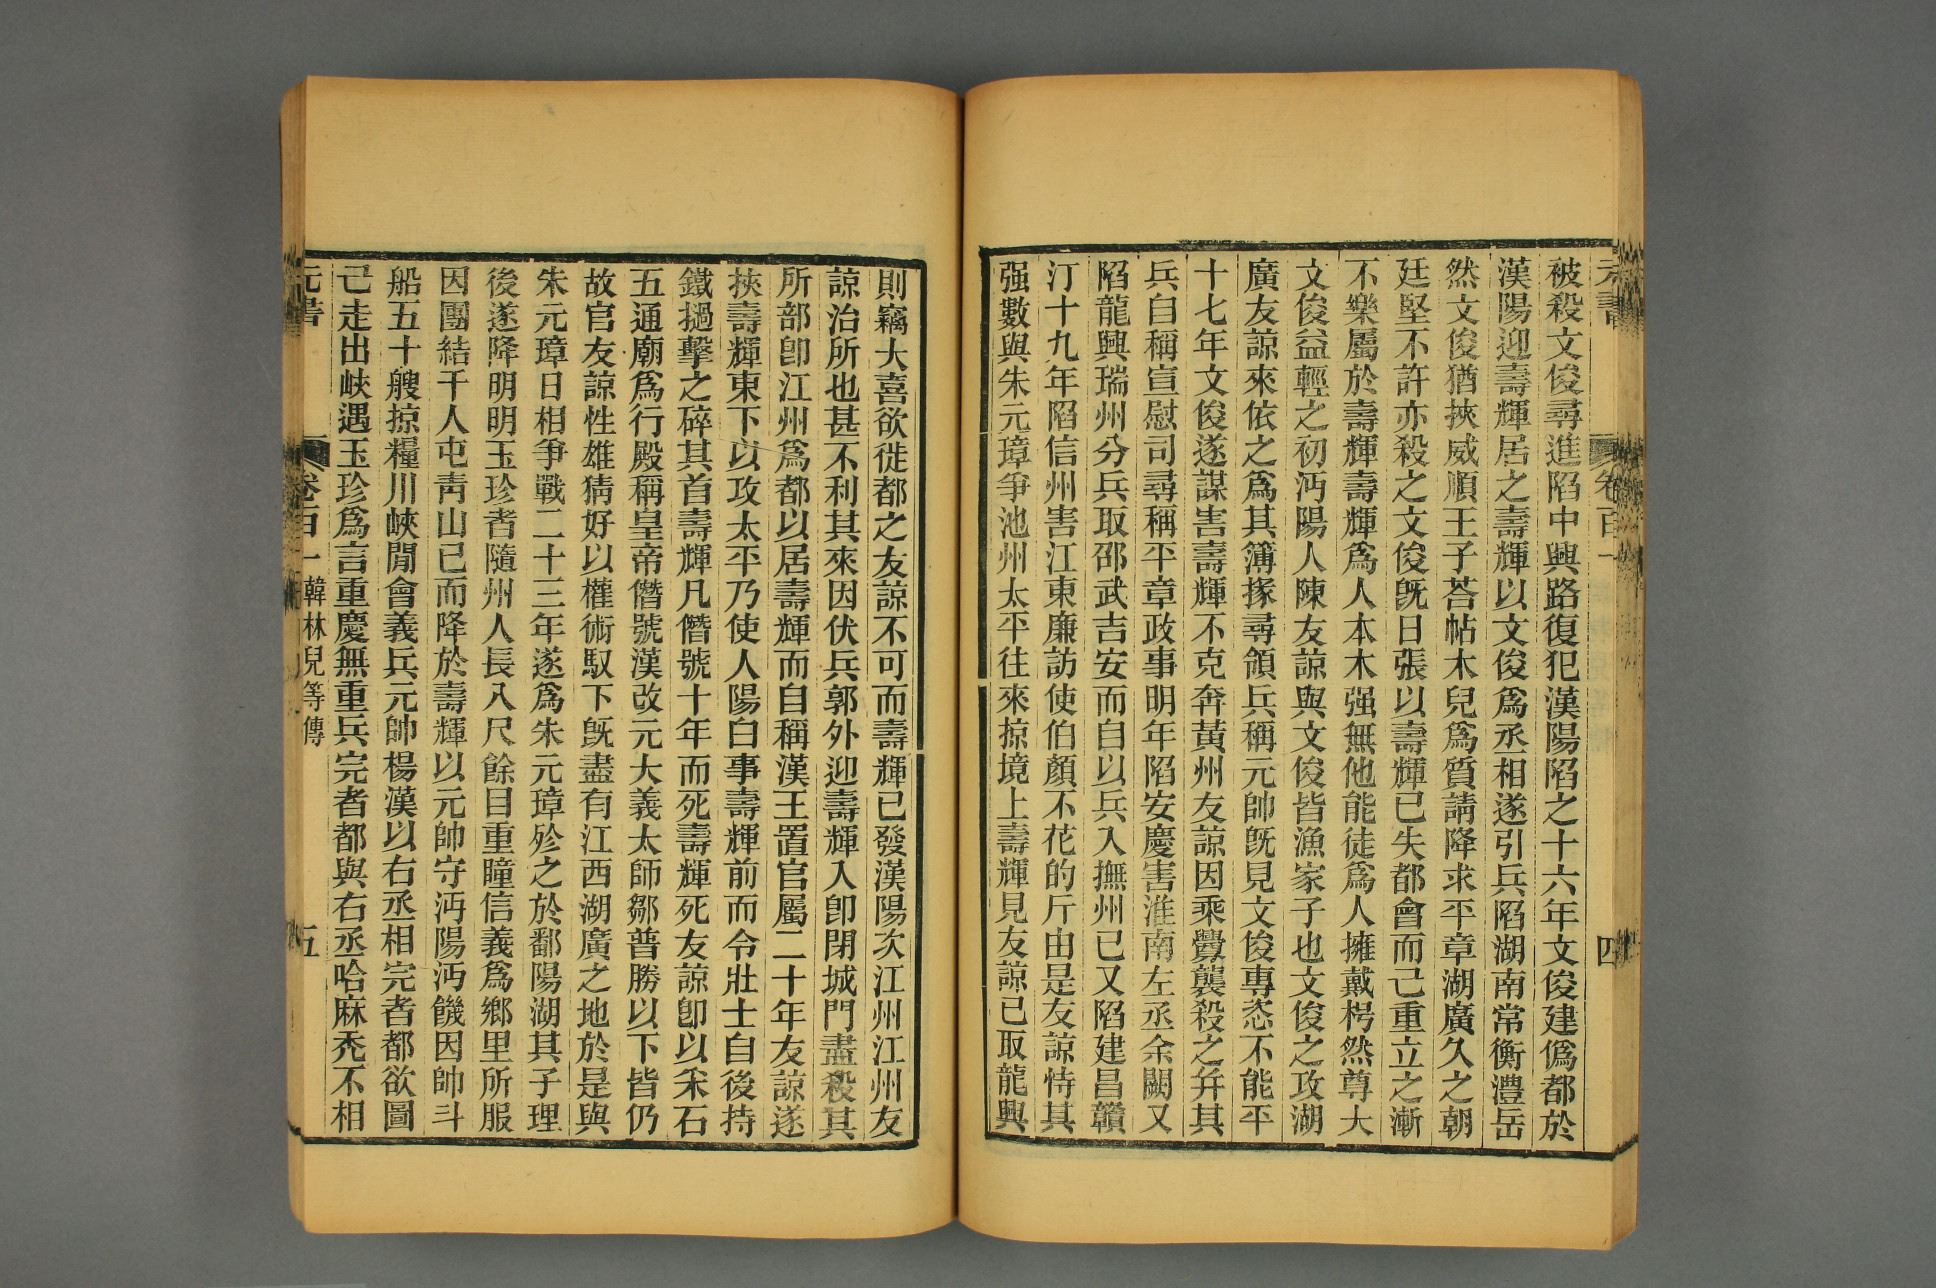 元書
卷百一
四
被殺文俊尋進陷中興路復犯漢陽陷之十六年文俊建僞都於
漢陽迎壽輝居之壽輝以文俊爲丞相遂引兵陷湖南常衡澧岳
然文俊猶挾威順王子荅帖木兒爲質請降求平章湖廣久之朝
廷堅不許亦殺之文俊旣日張以壽輝已失都會而己重立之漸
不樂屬於壽輝壽輝爲人本木强無他能徒爲人擁戴枵然尊大
文俊益輕之初沔陽人陳友諒與文俊皆漁家子也文俊之攻湖
廣友諒來依之爲其簿掾尋領兵稱元帥旣見文俊專恣不能平
十七年文俊遂謀害壽輝不克奔黃州友諒因乘釁襲殺之幷其
兵自稱宣慰司尋稱平章政事明年陷安慶害淮南左丞余闕又
陷龍興瑞州分兵取邵武吉安而自以兵入撫州已又陷建昌贛
汀十九年陷信州害江東廉訪使伯顏不花的斤由是友諒恃其
强數與朱元璋爭池州太平往來掠境上壽輝見友諒已取龍興
則竊大喜欲徙都之友諒不可而壽輝已發漢陽次江州江州友
諒治所也甚不利其來因伏兵郭外迎壽輝入卽閉城門盡殺其
所部卽江州爲都以居壽輝而自稱漢王置官屬二十年友諒遂
挾壽輝東下以攻太平乃使人陽白事壽輝前而令壯士自後持
鐵撾擊之碎其首壽輝凡僭號十年而死壽輝死友諒卽以采石
五通廟爲行殿稱皇帝僭號漢改元大義太師鄒普勝以下皆仍
故官友諒性雄猜好以權術馭下旣盡有江西湖廣之地於是與
朱元璋日相爭戰二十三年遂爲朱元璋殄之於鄱陽湖其子理
後遂降明明玉珍者隨州人長八尺餘目重瞳信義爲鄉里所服
因團結千人屯靑山已而降於壽輝以元帥守沔陽沔饑因帥斗
船五十艘掠糧川峽閒會義兵元帥楊漢以右丞相完者都欲圖
己走出峽遇玉珍爲言重慶無重兵完者都與右丞哈麻禿不相
元書
卷百一 韓林兒等傳
五